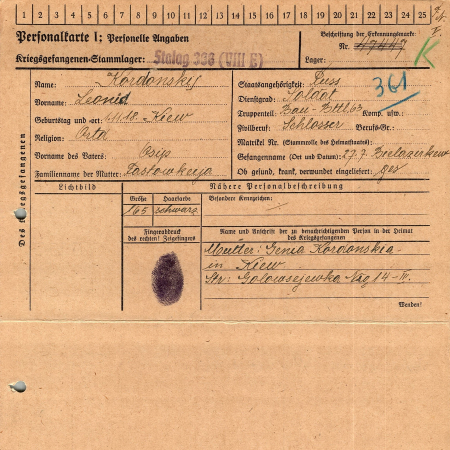 1 2 3 4 5 6 7 8 9 10 11 12 13 14 15 16 17 18 19 20 21 22 23 24 25
Personalkarte I: Personelle Angaben
Kriegsgefangenen-Stammlager: Stalag 338 (VIII E)
Beschriftung der Erkennungsmarke:
Nr. 47447
Lager:
K
361
Des Kriegsgefangenen
Name: Kordonskij
Vorname: Leonid
Geburtstag und -ort: Kiew
Religion:
Vorname des Vaters: Osip
Familienname der Mutter:
Staatsangehörigkeit: Russ
Dienstgrad: Soldat
Truppenteil: Bau-Btl. 63 Komp. usw.:
Zivilberuf: Schlosser Berufs-Gr.:
Matrikel Nr. (Stammrolle des Heimatstaates):
Gefangennahme (Ort und Datum): 27.7. Bielazerkew
Ob gesund, krank, verwundet eingeliefert: ges
Lichtbild
Nähere Personalbeschreibung
Größe Haarfarbe
165 schwarz
Besondere Kennzeichen:
Fingerabdruck
des rechten! Zeigefingers
Name und Anschrift der zu benachrichtigenden Person in der Heimat
des Kriegsgefangenen
Mutter: Genia Kordonskia-
in Kiew
Str: Golowsejewka No 14-
Wenden!